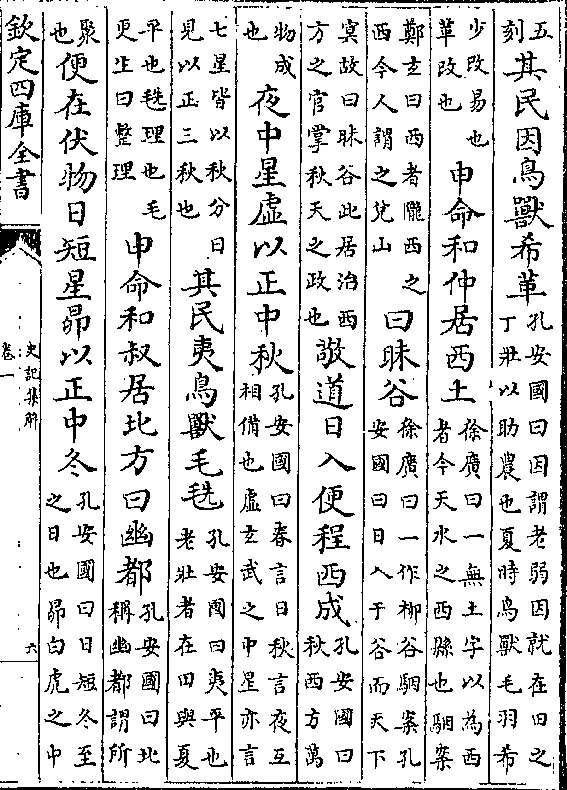 五刻其民因鳥獸希革孔安國曰因謂老弱因就在田之丁壯以助農也夏時鳥獸毛羽希
少改易也革改也申命和仲居西土徐廣曰一無土字以為西者今天水之西縣也駰案
鄭玄曰西者隴西之西今人謂之兌山曰昧谷徐廣曰一作柳谷駰案孔安國曰日入于谷而天下
冥故曰昧谷此居治西方之官掌秋天之政也敬道日入便程西成孔安國曰秋西方萬
物成也夜中星虛以正中秋孔安國曰春言日秋言夜互相備也虛玄武之中星亦言
七星皆以秋分日見以正三秋也其民夷鳥獸毛毨孔安國曰夷平也老壯者在田與夏
平也毨理也毛更生曰整理申命和叔居北方曰幽都孔安國曰北稱幽都謂所
聚也便在伏物日短星昴以正中冬孔安國曰日短冬至之日也昴白虎之中
欽定四庫全書
史記集解
卷一
六